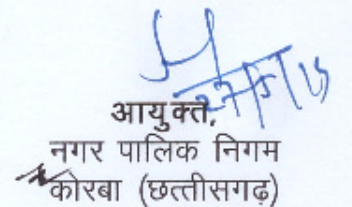 आयुक्त,
नगर पालिक निगम
कोरबा (छत्तीसगढ़)